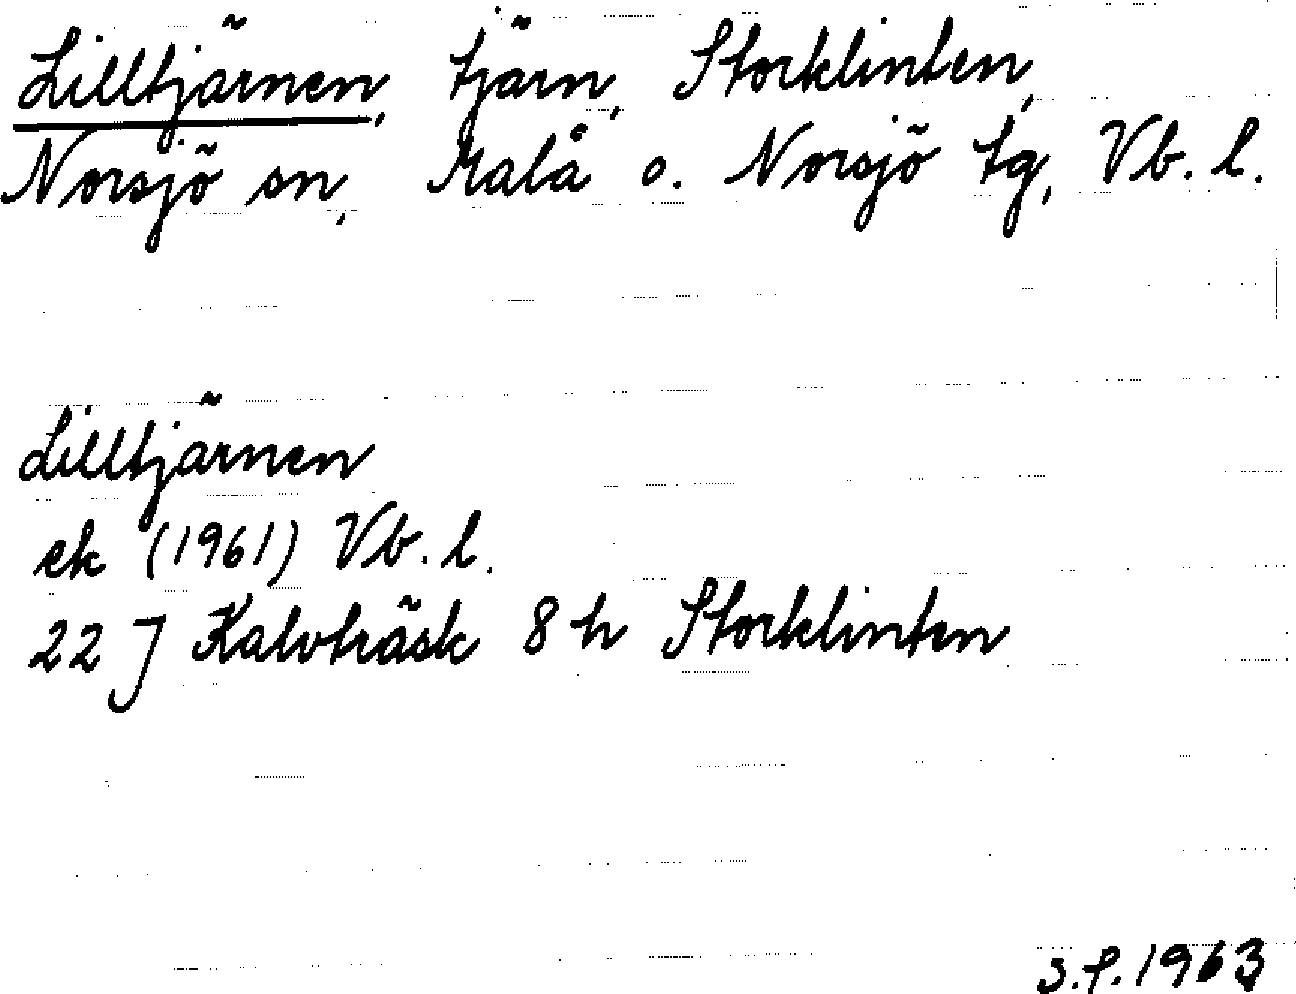 Lilltjärnen, tjärn, Storklinten,
Norsjö sn, Malå o. Norsjö tg, Vb. l.
Lilltjärnen
ek (1961) Vb. l.
22 J Kalvträsk 8 h Storklinten
S.f. 1963